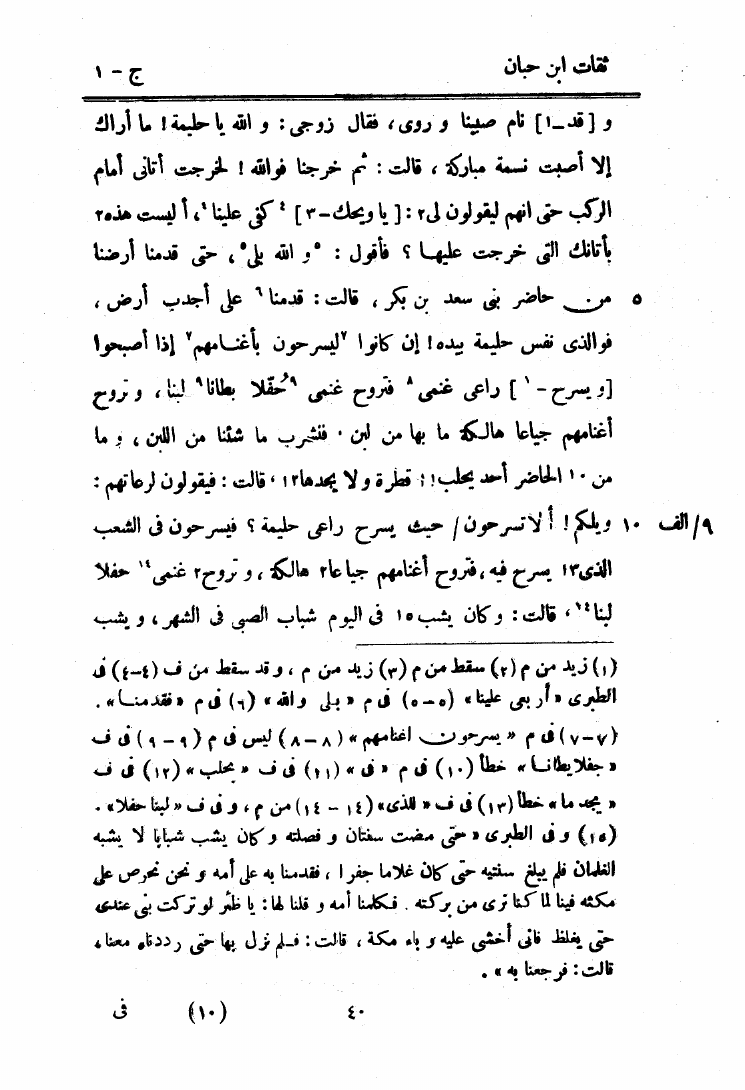 ثقات ابن حبان ج - ١
و [قد-١] نام صبينا و روى، فقال زوجى: و الله يا حليمة! ما أراك
إلا أصبت نسمة مباركة، قالت: ثم خرجنا فوالله! لخرجت أتانى أمام
الركب حتى انهم ليقولون لى٢: [يا ويحك-٣] ٤ كفى علينا٤، أ ليست هذه٢
بأتانك التى خرجت عليها؟ فأقول: ٥و الله بلى٥، حتى قدمنا أرضنا
٥ من حاضر بنى سعد بن بكر، قالت: قدمنا٦ على أجدب أرض،
فوالذى نفس حليمة بيده! إن كانوا ٧ليسرحون بأغنامهم٧ إذا أصبحوا
[و يسرح-١] راعى غنمى٨ فتروح غنمى ٩حُفّلا بطانا٩ لبنا، و تروح
أغنامهم جياعا هالكة ما بها من لبن. فنشرب ما شئنا من اللبن، و ما
من ١٠ الحاضر أحد يحلب١١ قطرة و لا يجدها١٢، قالت: فيقولون لرعاتهم:
٩/الف ١٠ ويلكم! ألا تسرحون/ حيث يسرح راعى حليمة؟ فيسرحون فى الشعب
الذى١٣ يسرح فيه، فتروح أغنامهم جياعا٢ هالكة، و تروح٢ غنمى١٤ حفلا
لبنا١٤، قالت: و كان يشب١٥ فى اليوم شباب الصبى فى الشهر، و يشب
(١) زيد من م (٢) سقط من م (٣) زيد من م، و قد سقط من ف (٤-٤) فى
الطبرى «أربعى علينا» (٥-٥) فى م «بلى والله» (٦) فى م «فقدمنا».
(٧-٧) فى م «يسرحون اغنامهم» (٨-٨) ليس فى م (٩-٩) فى ف
«جفلا يطانا» خطأ (١٠) فى م «فى» (١١) فى ف «بحلب» (١٢) فى ف
«يجد ما» خطأ (١٣) فى ف «للذى» (١٤-١٤) من م، و فى ف «لبنا حفلا».
(١٥) و فى الطبرى «حتى مضت سفتان و فصلته و كان يشب شبابا لا يشبه
الغلمان فلم يبلغ سنتيه حتى كان غلاما جفرا، فقدمنا به على أمه و نحن نحرص على
مكثه فينا لما كنا نرى من بركته. فكلمنا أمه و قلنا لها: يا ظئر لو تركت بنى عندى
حتى يغلظ فانى أخشى عليه وباء مكة، قالت: فلم نزل بها حتى رددتاه معنا،
قالت: فرجعنا به».
٤٠ (١٠) فى